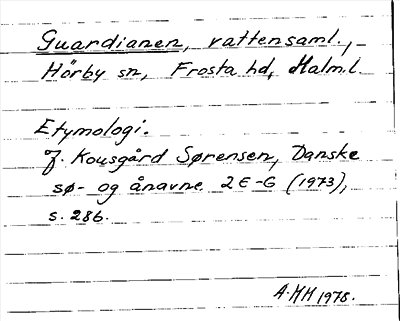 Guardianen, vattensaml.,
Hörby sn, Frosta hd, Malm.l.
Etymologi.
J. Kousgård Sørensen, Danske
sø- og ånavne 2 E-G (1973),
s. 286.
A.MM 1978.